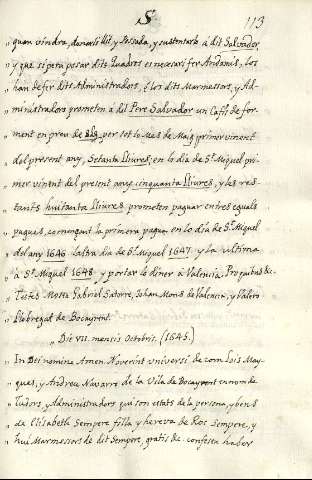 S. 113
quan vindra, donarli llit, y posada, y sustentarlo à dit Salvador,
y que si pera posar dits Quadros es necesari fer Andamis, los
han de fer dits Administradors, ò los dits Marmessors, y Ad-
ministradors prometen à dit Pere Salvador un Cafís de for-
ment en preu de per tot lo Mes de Maig primer vinent
del present any, Setanta lliures, en lo dia de St. Miquel pri-
mer vinent del present any, cinquanta lliures, y les res-
tants huitanta lliures prometen paguar entres eguals
pagues, comensant la primera pagua en lo dia de St. Miquel
del any 1646 laltra dia de St. Miquel 1647 y la ultima
à St. Miquel 1648 y portar lo diner à Valencia. Pro quibus &c.
Testes Mosen Gabriel Satorre, Johan Mons de Valencia, y Valero
Plebregat de Bocayrent.
Die VII. mensis Octobris, (1645)
In Dei nomine Amen. Noverint universi de com Lois May-
ques, y Andreu Navarri de la Vila de Bocayrent en nom de
Tutors, y Administradors qui son estats de la persona, y bens
de Elisabeth Sempere filla y hereva de Ros Sempere, y
hui Marmessors de dit Sempere, gratis &c. confesen haber